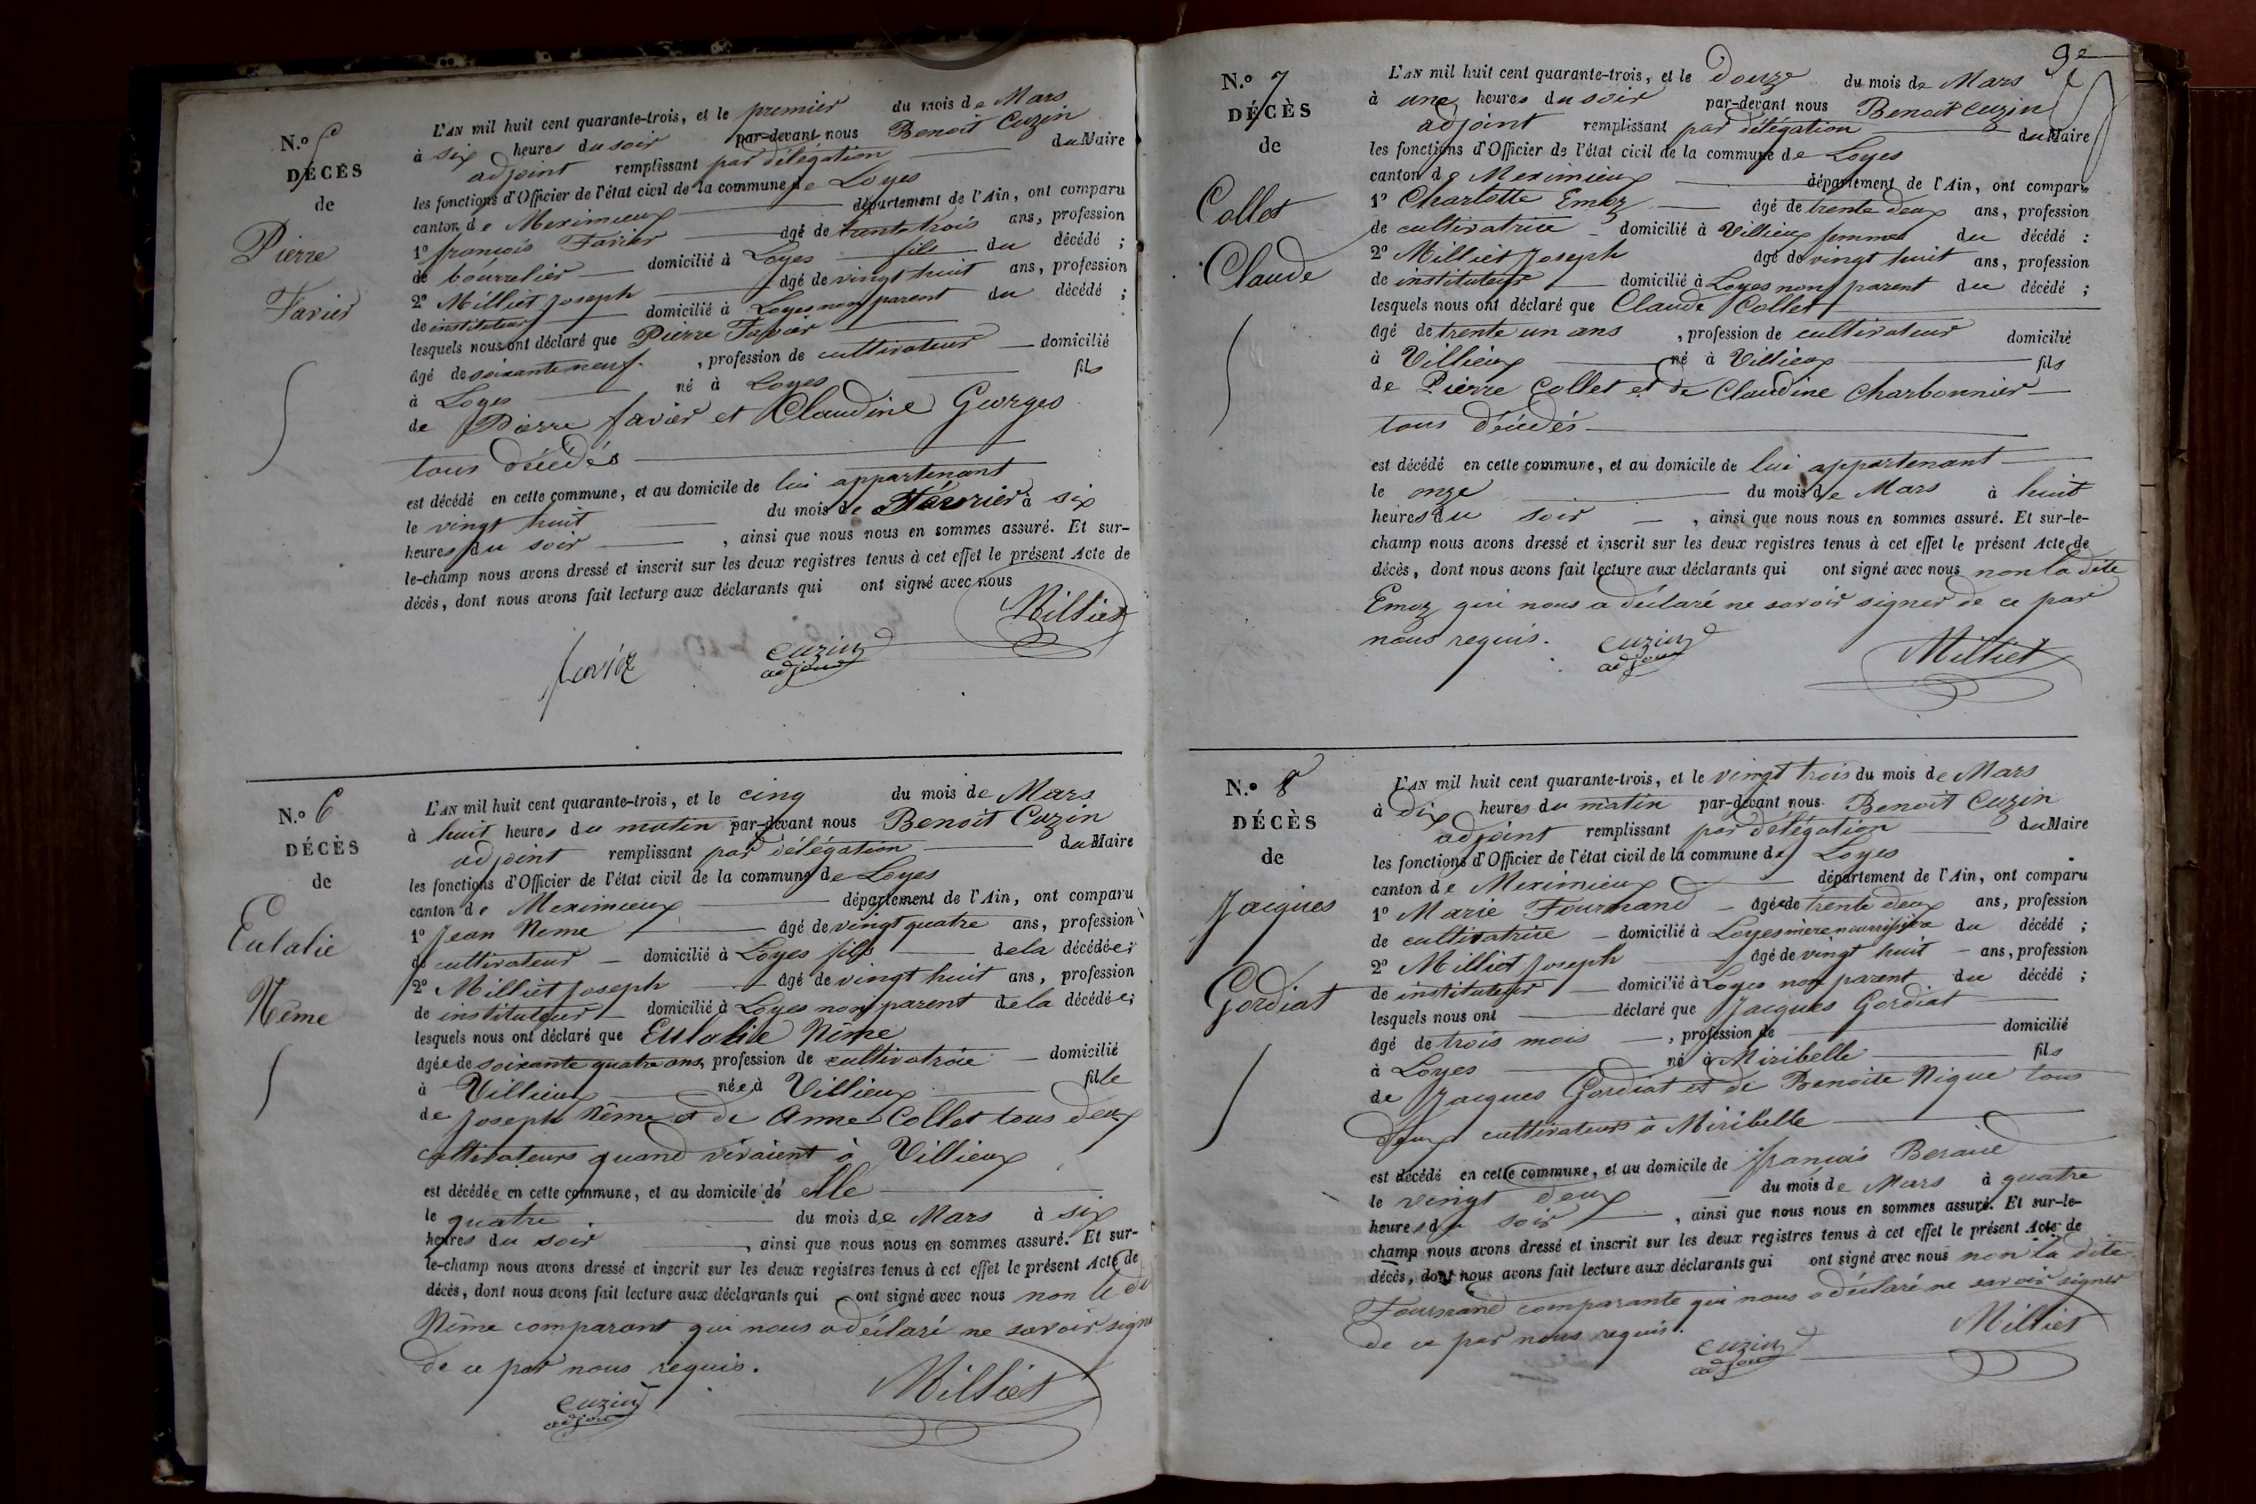 N.o 5
DÉCÈS
de
Pierre
Favier
L'AN mil huit cent quarante-trois, et le premier du mois de Mars
à six heures du soir par-devant nous Benoit Cuzin
adjoint remplissant par délégation du Maire
les fonctions d'Officier de l'état civil de la commune de Loyes
canton de Meximieux département de l'Ain, ont comparu
1º françois Favier âgé de trente trois ans, profession
de bourrelier domicilié à Loyes fils du décédé ;
2º Milliet Joseph âgé de vingt huit ans, profession
de instituteur domicilié à Loyes non parent du décédé ;
lesquels nous ont déclaré que Pierre Favier
âgé de soixante neuf , profession de cultivateur domicilié
à Loyes né à Loyes fils
de Pierre favier et Claudine Georges
tous décédés
est décédé en cette commune, et au domicile de lui appartenant
le vingt huit du mois de Février à six
heures du soir , ainsi que nous nous en sommes assuré. Et sur-
le-champ nous avons dressé et inscrit sur les deux registres tenus à cet effet le présent Acte de
décès, dont nous avons fait lecture aux déclarants qui ont signé avec nous
Milliet
favier cuzin
adjoint
N.o 6
DÉCÈS
de
Eulalie
Nême
L'AN mil huit cent quarante-trois, et le cinq du mois de Mars
à huit heures du matin par-devant nous Benoit Cuzin
adjoint remplissant par délégation du Maire
les fonctions d'Officier de l'état civil de la commune de Loyes
canton de Meximieux département de l'Ain, ont comparu
1º Jean Neme âgé de vingt quatre ans, profession
de cultivateur domicilié à Loyes fils de la décédée ;
2º Milliet Joseph âgé de vingt huit ans, profession
de instituteur domicilié à Loyes non parent de la décédée ;
lesquels nous ont déclaré que Eulalie Nême
âgée de soixante quatre ans, profession de cultivatrice domicilié
à Villieux née à Villieux fille
de Joseph Nême et de Anne Collet tous deux
cultivateurs quand vivaient à Villieux
est décédée en cette commune, et au domicile de elle
le quatre du mois de Mars à six
heures du soir , ainsi que nous nous en sommes assuré. Et sur-
le-champ nous avons dressé et inscrit sur les deux registres tenus à cet effet le présent Acte de
décès, dont nous avons fait lecture aux déclarants qui ont signé avec nous non le dit
Nême comparant qui nous a déclaré ne savoir signer
de ce par nous requis.
cuzin Milliet
adjoint
9e
N.o 7
DÉCÈS
de
Collet
Claude
L'AN mil huit cent quarante-trois, et le douze du mois de Mars
à une heures du soir par-devant nous Benoit Cuzin
adjoint remplissant par délégation du Maire
les fonctions d'Officier de l'état civil de la commune de Loyes
canton de Meximieux département de l'Ain, ont comparu
1º Charlotte Emoz âgé de trente deux ans, profession
de cultivatrice domicilié à Villieux femme du décédé :
2º Milliet Joseph âgé de vingt huit ans, profession
de instituteur domicilié à Loyes non parent du décédé ;
lesquels nous ont déclaré que Claude Collet
âgé de trente un ans , profession de cultivateur domicilié
à Villieux né à Villieux fils
de Pierre Collet et de Claudine Charbonnier
tous décédés
est décédé en cette commune, et au domicile de lui appartenant
le onze du mois de Mars à huit
heures du soir , ainsi que nous nous en sommes assuré. Et sur-le-
champ nous avons dressé et inscrit sur les deux registres tenus à cet effet le présent Acte de
décès, dont nous avons fait lecture aux déclarants qui ont signé avec nous non la dite
Emoz qui nous a déclaré ne savoir signer de ce par
nous requis. cuzin Milliet
adjoint
N.o 8
DÉCÈS
de
Jacques
Gordiat
L'AN mil huit cent quarante-trois, et le vingt trois du mois de Mars
à dix heures du matin par-devant nous Benoit Cuzin
adjoint remplissant par délégation du Maire
les fonctions d'Officier de l'état civil de la commune de Loyes
canton de Meximieux département de l'Ain, ont comparu
1º Marie Fournand âgée de trente deux ans, profession
de cultivatrice domicilié à Loyes mère nourricière du décédé ;
2º Milliet Joseph âgé de vingt huit ans, profession
de instituteur domicilié à Loyes non parent du décédé ;
lesquels nous ont déclaré que Jacques Gordiat
âgé de trois mois , profession de domicilié
à Loyes né à Miribelle fils
de Jacques Gordiat et de Benoite Nique tous
deux cultivateurs à Miribelle
est décédé en cette commune, et au domicile de françois Beraud
le vingt deux du mois de Mars à quatre
heures du soir , ainsi que nous nous en sommes assuré. Et sur-le-
champ nous avons dressé et inscrit sur les deux registres tenus à cet effet le présent Acte de
décès, dont nous avons fait lecture aux déclarants qui ont signé avec nous non la dite
Fournand comparante qui nous a déclaré ne savoir signer
de ce par nous requis. cuzin Milliet
adjoint